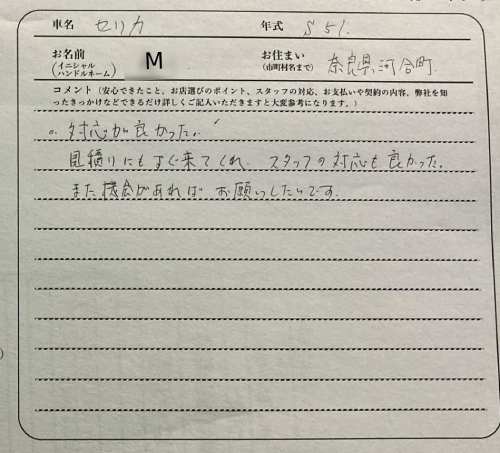 車名 セリカ 年式 S51.
お名前 (イニシャル ハンドルネーム) M お住まい (市町村名まで) 奈良県河合町
コメント(安心できたこと、お店選びのポイント、スタッフの対応、お支払いや契約の内容、弊社を知
ったきっかけなどできるだけ詳しくご記入いただきますと大変参考になります。)
○. 対応が良かった.
見積りにもすぐ来てくれ、スタッフの対応も良かった.
また機会があればお願いしたいです.